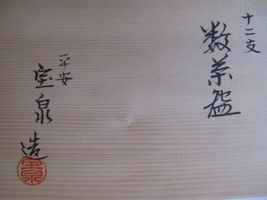 十二支
数茶碗
平安
宝泉造